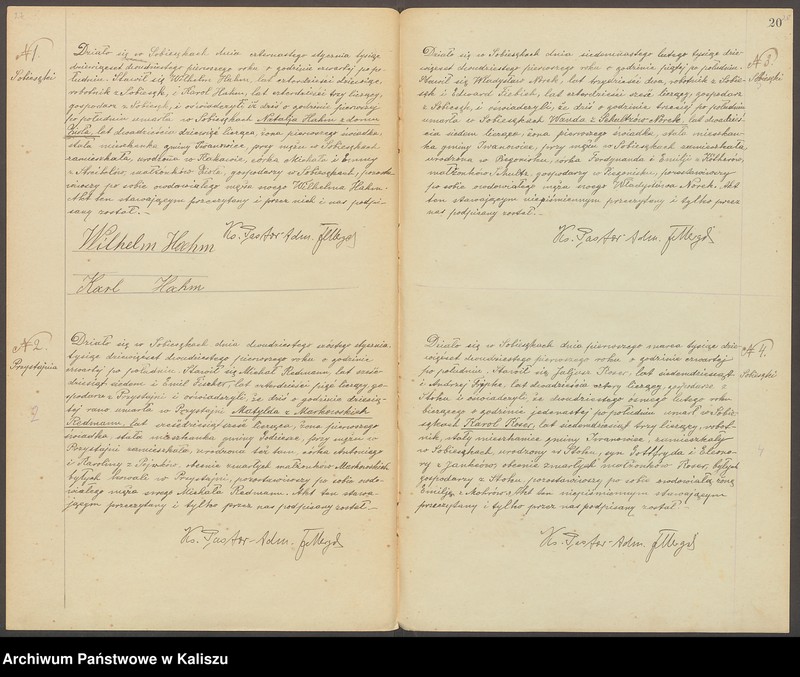 № 1.
Sobieszki
Działo się w Sobieszkach dnia czternastego stycznia tysiąc
dziewięćset dwudziestego pierwszego roku o godzinie czwartej po po-
łudniu. Stawił się Wilhelm Hahm, lat czterdzieści
robotnik z Sobieszk, i Karol Hahm, lat czterdzieści trzy liczący,
gospodarz z Sobieszk, i oświadczyli że dziś o godzinie pierwszej
po południu umarła w Sobieszkach Natalja Hahm z domu
lat dwadzieścia dziewięć licząca, żona pierwszego świadka,
stała mieszkanka gminy Iwanowice, przy mężu w Sobieszkach
zamieszkała, urodzona w córka Michała i
małżonków gospodarzy w Sobieszkach, pozosta-
wiwszy po sobie owdowiałego męża swego Wilhelma Hahm.
Akt ten stawającym przeczytany i przez nich i nas podpi-
sany został.—
Wilhelm Hahm Ks. Pastor Adm.
Karl Hahm
№ 2.
Przystajnia
Działo się w Sobieszkach dnia dwudziestego szóstego stycznia
tysiąc dziewięćset dwudziestego pierwszego roku o godzinie
czwartej po południu. Stawił się Michał Redmann, lat sześć-
dziesiąt siedem i Emil lat czterdzieści pięć liczący, go-
spodarze z Przystajni i oświadczyli, że dziś o godzinie dziesią-
tej rano umarła w Przystajni Matylda z Markowskich
Redmann, lat sześćdziesiąt sześć licząca, żona pierwszego
świadka, stała mieszkanka gminy przy mężu w
Przystajni zamieszkała, urodzona też tam, córka Antoniego
i Karoliny z obecnie zmarłych małżonków Markowskich
byłych w Przystajni, pozostawiwszy po sobie owdo-
wiałego męża swego Michała Redmann. Akt ten stawa-
jącym przeczytany i tylko przez nas podpisany został.—
Ks. Pastor-Adm.
20
№ 3.
Sobieszki
Działo się w Sobieszkach dnia siedemnastego lutego tysiąc dzie-
więćset dwudziestego pierwszego roku o godzinie piątej po południu.
Stawił się Władysław Norek, lat trzydzieści dwa, robotnik z Sobie-
szk i Edward lat czterdzieści sześć liczący, gospodarz
z Sobieszk, i oświadczyli, że dziś o godzinie trzeciej po południu
umarła w Sobieszkach Wanda z Schultzów Norek, lat dwadzieś-
cia siedem licząca, żona pierwszego świadka, stała mieszkan-
ka gminy Iwanowice, przy mężu w Sobieszkach zamieszkała
urodzona w córka Ferdynanda i Emilji z
małżonków Schultz, gospodarzy w pozostawiwszy
po sobie owdowiałego męża swego Władysława Norek. Akt
ten stawającym niepiśmiennym przeczytany i tylko przez
nas podpisany został.—
Ks. Pastor Adm.
№ 4.
Sobieszki
Działo się w Sobieszkach dnia pierwszego marca tysiąc dzie-
więćset dwudziestego pierwszego roku o godzinie czwartej
po południu. Stawił się Juljusz Roser, lat siedemdziesiąt
i Andrzej lat dwadzieścia cztery liczący, gospodarze z
i oświadczyli, że dwudziestego ósmego lutego roku
bieżącego o godzinie jedenastej po południu umarł w Sobie-
szkach Karol Roser, lat siedemdziesiąt trzy liczący, robot-
nik, stały mieszkaniec gminy Iwanowice, zamieszkały
w Sobieszkach, urodzony w syn Gottfryda i Eleono-
ry z obecnie zmarłych małżonków Roser, byłych
gospodarzy z pozostawiwszy po sobie owdowiałą żonę
Emilję z Akt ten niepiśmiennym stawającym
przeczytany i tylko przez nas podpisany został—
Ks. Pastor-Adm.
Archiwum Państwowe w Kaliszu